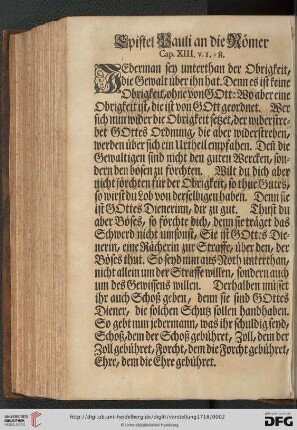 Epistel Pauli an die Römer
Cap. XIII. v. 1. - 8.
JEderman sey unterthan der Obrigkeit,
die Gewalt über ihn hat. Denn es ist keine
Obrigkeit, ohne von GOtt: Wo aber eine
Obrigkeit ist, die ist von GOtt geordnet. Wer
sich nun wider die Obrigkeit setzet, der widerstre-
bet GOttes Ordnung, die aber widerstreben,
werden über sich ein Urtheil empfahen. Deñ die
Gewaltigen sind nicht den guten Wercken, son-
dern den bösen zu förchten. Wilt du dich aber
nicht förchten für der Obrigkeit, so thue Gutes,
so wirst du Lob von derselbigen haben. Denn sie
ist GOttes Dienerinn, dir zu gut. Thust du
aber Böses, so förchte dich, denn sie träget das
Schwerd nicht umsonst, Sie ist GOttes Die-
nerin, eine Rächerin zur Straffe, über den, der
Böses thut. So seyd nun aus Noth unterthan,
nicht allein um der Straffe willen, sondern auch
um des Gewissens willen. Derhalben müsset
ihr auch Schoß geben, denn sie sind GOttes
Diener, die solchen Schutz sollen handhaben.
So gebt nun jedermann, was ihr schuldig seyd,
Schoß, dem der Schoß gebühret, Zoll, dem der
Zoll gebühret, Forcht, dem die Forcht gebühret,
Ehre, dem die Ehre gebühret.
UNIVERSITÄTS-
BIBLIOTHEK
HEIDELBERG
http://digi.ub.uni-heidelberg.de/diglit/verstellung1718/0002
© Universitätsbibliothek Heidelberg
gefördert durch
DFG